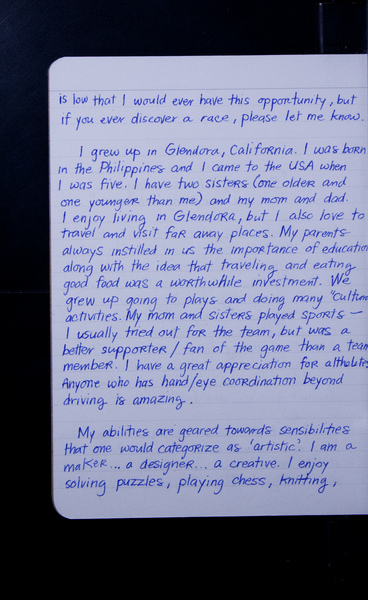 is low that I would ever have this opportunity, but
if you ever discover a race, please let me know.
I grew up in Glendora, California. I was born
in the Philippines and I came to the USA when
I was five. I have two sisters (one older and
one younger than me) and my mom and dad.
I enjoy living in Glendora, but I also love to
travel and visit far away places. My parents
always instilled in us the importance of education
along with the idea that traveling and eating
good food was a worthwhile investment. We
grew up going to plays and doing many "Cultural
activities. My mom and sisters played sports —
I usually tried out for the team, but was a
better supporter/fan of the game than a team
member. I have a great appreciation for althelites
Anyone who has hand/eye coordination beyond
driving is amazing.
My abilities are geared towards sensibilities
that one would categorize as 'artistic'. I am a
maker... a designer... a creative. I enjoy
solving puzzles, playing chess, knitting,